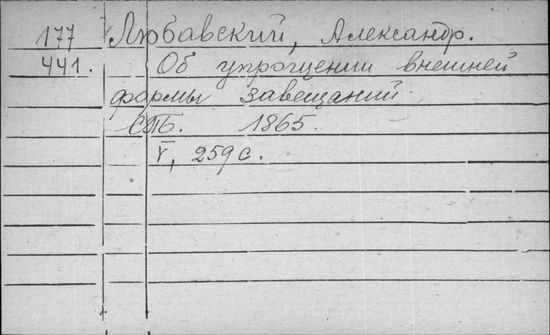 177 Любавский, Александр.
441. Об упрощении внешней
формы завещаний.
СПБ. 1865.
V, 259 с.